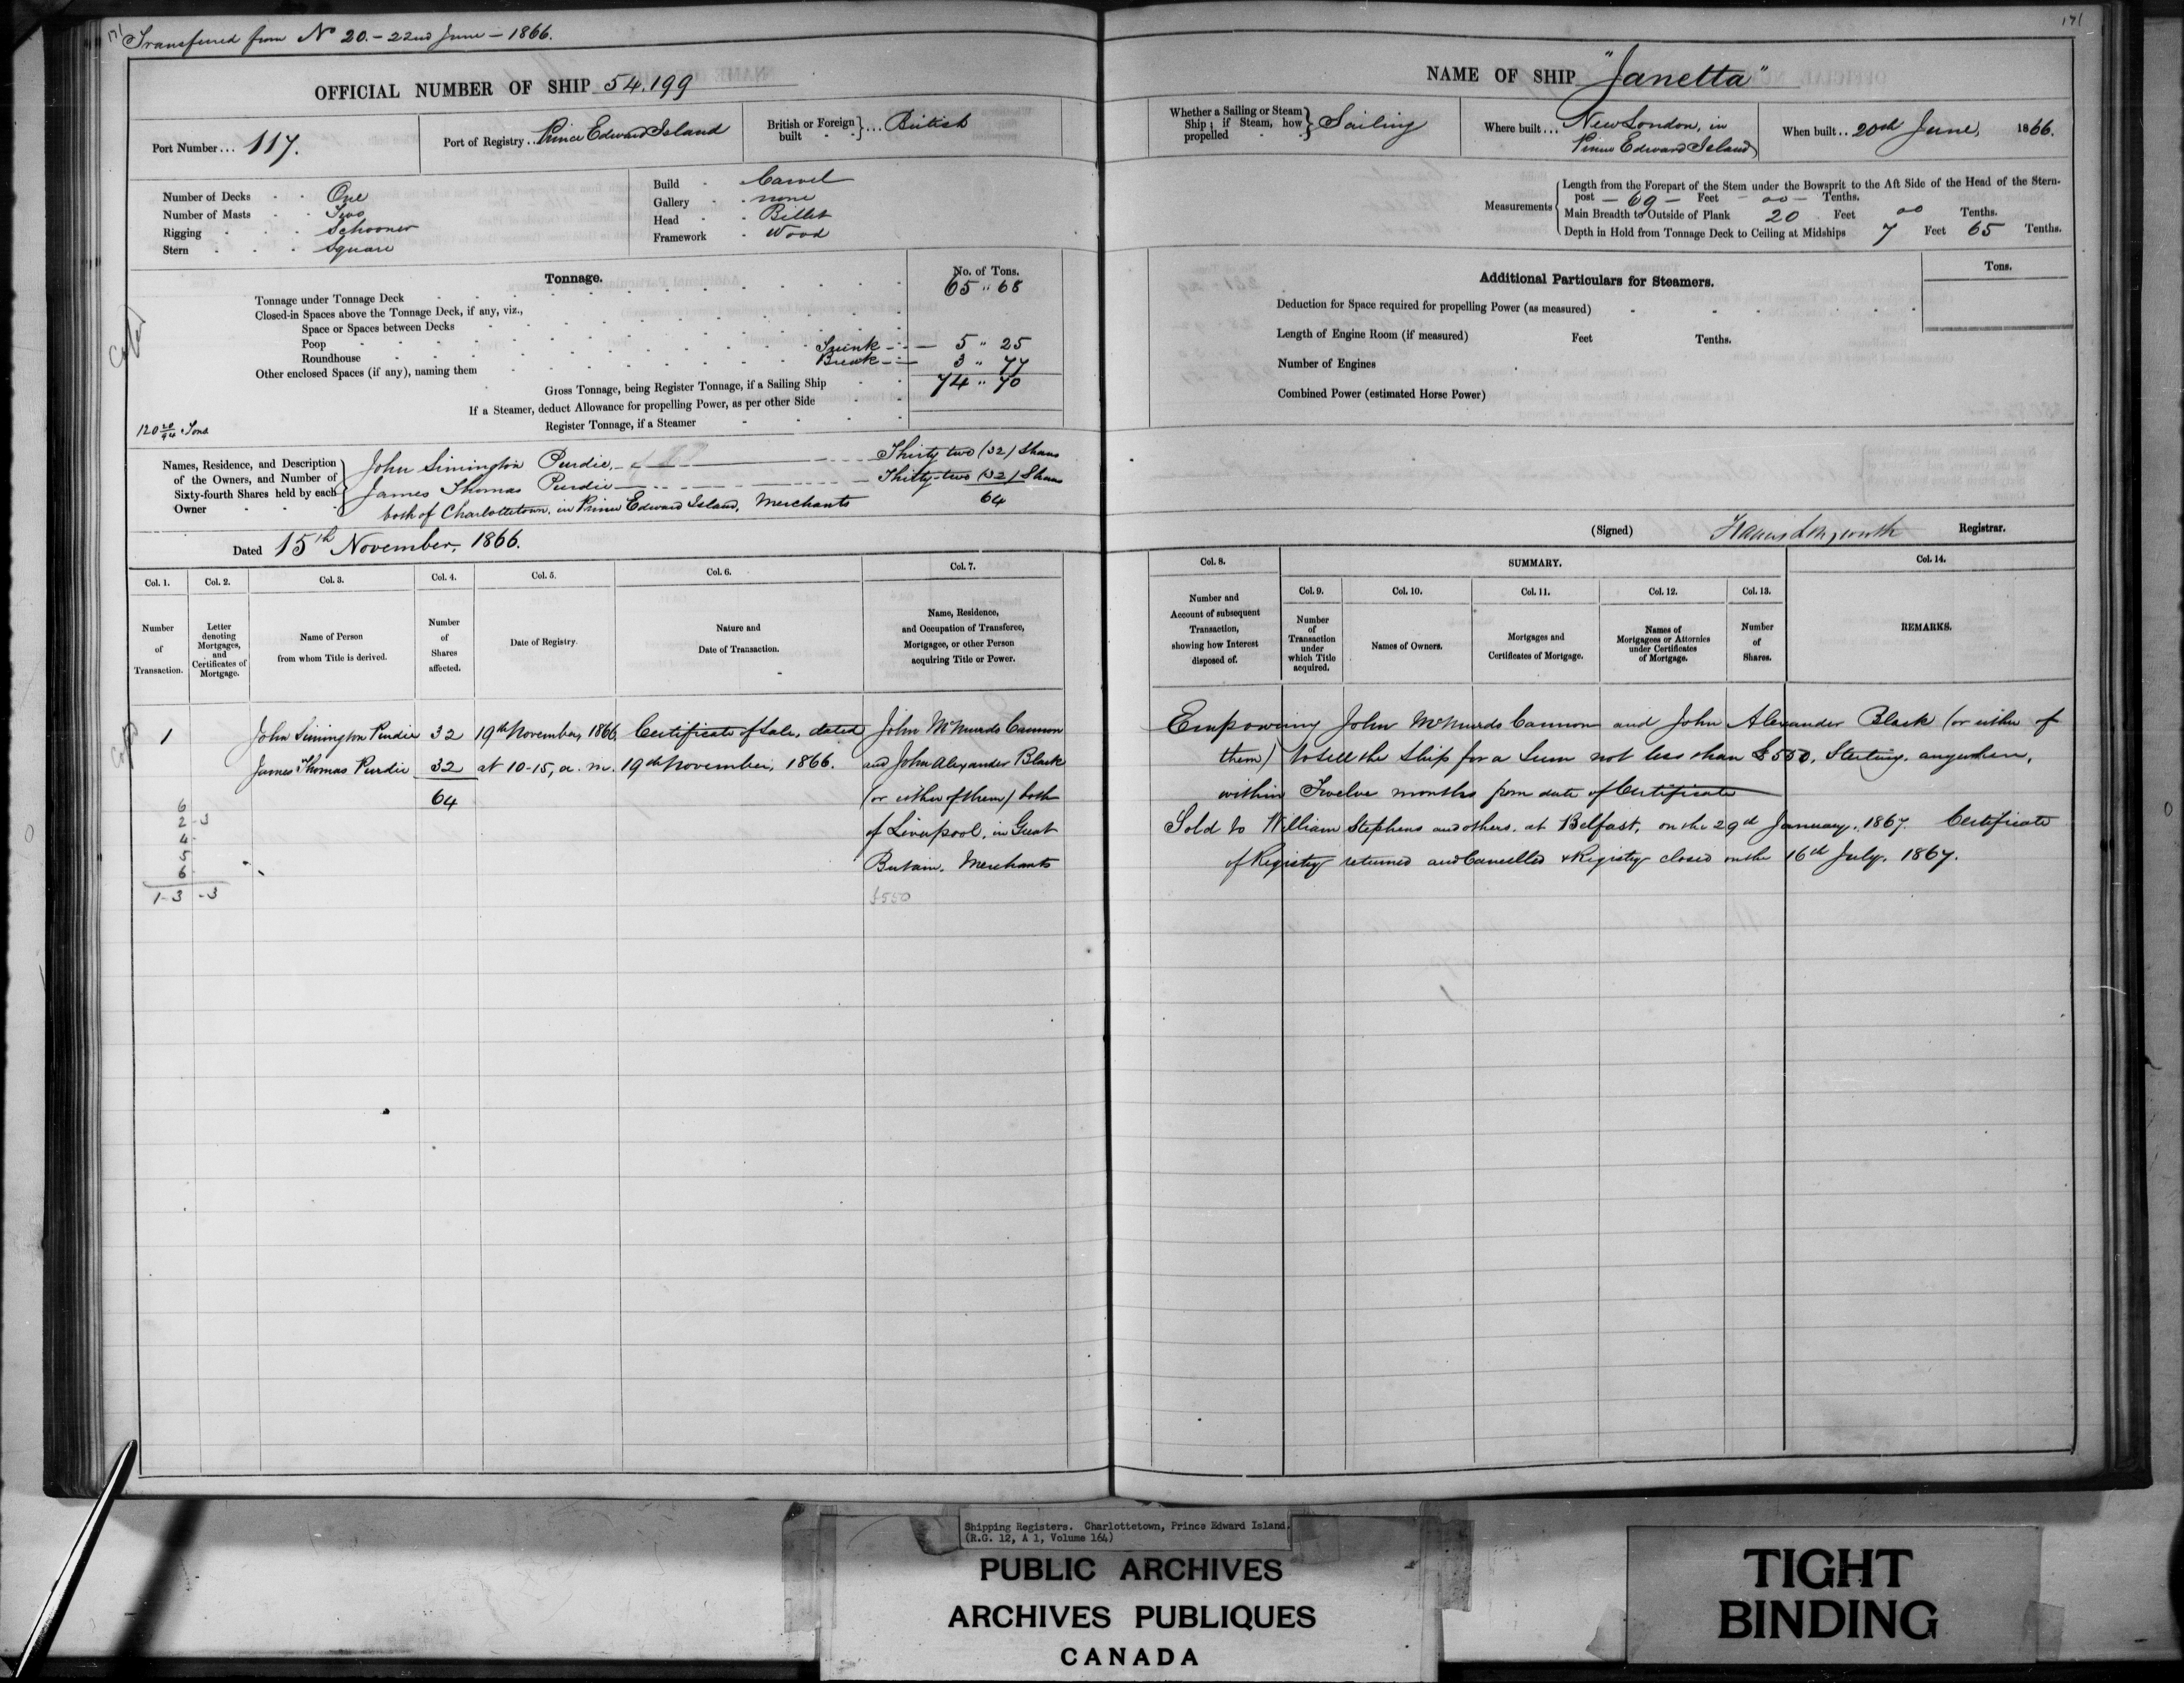 171
Transferred from No 20. - 22nd June - 1866.
OFFICIAL NUMBER OF SHIP 54.199
Port Number... 117.
Port of Registry.. Prince Edward Island
British or Foreign built } ... British
Number of Decks - - One
Number of Masts - - Two
Rigging - - - Schooner
Stern - - - Square
Build - Carvel
Gallery - none
Head - - Billet
Framework - Wood
Tonnage.
No. of Tons.
Tonnage under Tonnage Deck 65 " 68
Closed-in Spaces above the Tonnage Deck, if any, viz.,
Space or Spaces between Decks
Poop
Trunk - 5 " 25
Roundhouse
Break - 3 " 77
Other enclosed Spaces (if any), naming them
Gross Tonnage, being Register Tonnage, if a Sailing Ship 74 " 70
If a Steamer, deduct Allowance for propelling Power, as per other Side
Register Tonnage, if a Steamer
120 20/94 Tons
Names, Residence, and Description of the Owners, and Number of Sixty-fourth Shares held by each Owner
John Simington Purdie, Thirty two (32) Shares
James Thomas Purdie Thirty-two (32) Shares
both of Charlottetown, in Prince Edward Island, Merchants 64
Dated 15th November, 1866.
Col. 1. Col. 2. Col. 3. Col. 4. Col. 5. Col. 6. Col. 7.
Number of Transaction.
Letter denoting Mortgages, and Certificates of Mortgage.
Name of Person from whom Title is derived.
Number of Shares affected.
Date of Registry.
Nature and Date of Transaction.
Name, Residence, and Occupation of Transferee, Mortgagee, or other Person acquiring Title or Power.
1 John Simington Purdie 32 19th November, 1866 Certificate of Sale, dated John McMurdo Cannon
James Thomas Purdie 32 at 10-15, a.m. 19th November, 1866. and John Alexander Black
64 (or either of them) both
of Liverpool, in Great
Britain, Merchants
£550
6
2 - 3
4 -
5
6
1-3 - 3
171
NAME OF SHIP "Janetta"
Whether a Sailing or Steam Ship; if Steam, how propelled } Sailing
Where built... New London, in
Prince Edward Island
When built.. 20th June, 1866.
Measurements
Length from the Forepart of the Stem under the Bowsprit to the Aft Side of the Head of the Stern-
post - 69 - Feet - 00 - Tenths.
Main Breadth to Outside of Plank 20 Feet 00 Tenths.
Depth in Hold from Tonnage Deck to Ceiling at Midships 7 Feet 65 Tenths.
Additional Particulars for Steamers.
Tons.
Deduction for Space required for propelling Power (as measured)
Length of Engine Room (if measured) Feet Tenths.
Number of Engines
Combined Power (estimated Horse Power)
(Signed) Registrar.
Col. 8. SUMMARY. Col. 14.
Col. 9. Col. 10. Col. 11. Col. 12. Col. 13.
Number and Account of subsequent Transaction, showing how Interest disposed of.
Number of Transaction under which Title acquired.
Names of Owners.
Mortgages and Certificates of Mortgage.
Names of Mortgagees or Attornies under Certificates of Mortgage.
Number of Shares.
REMARKS.
Empowering John McMurdo Cannon and John Alexander Black (or either of
them) to sell the Ship for a Sum not less than £550, Sterling, anywhere,
within Twelve months from date of Certificate
Sold to William Stephens and others, at Belfast, on the 29th January, 1867. Certificate
of Registry returned and Cancelled & Registry closed on the 16th July, 1867.
Shipping Registers. Charlottetown, Prince Edward Island.
(R.G. 12, A 1, Volume 164)
PUBLIC ARCHIVES
ARCHIVES PUBLIQUES
CANADA
TIGHT
BINDING